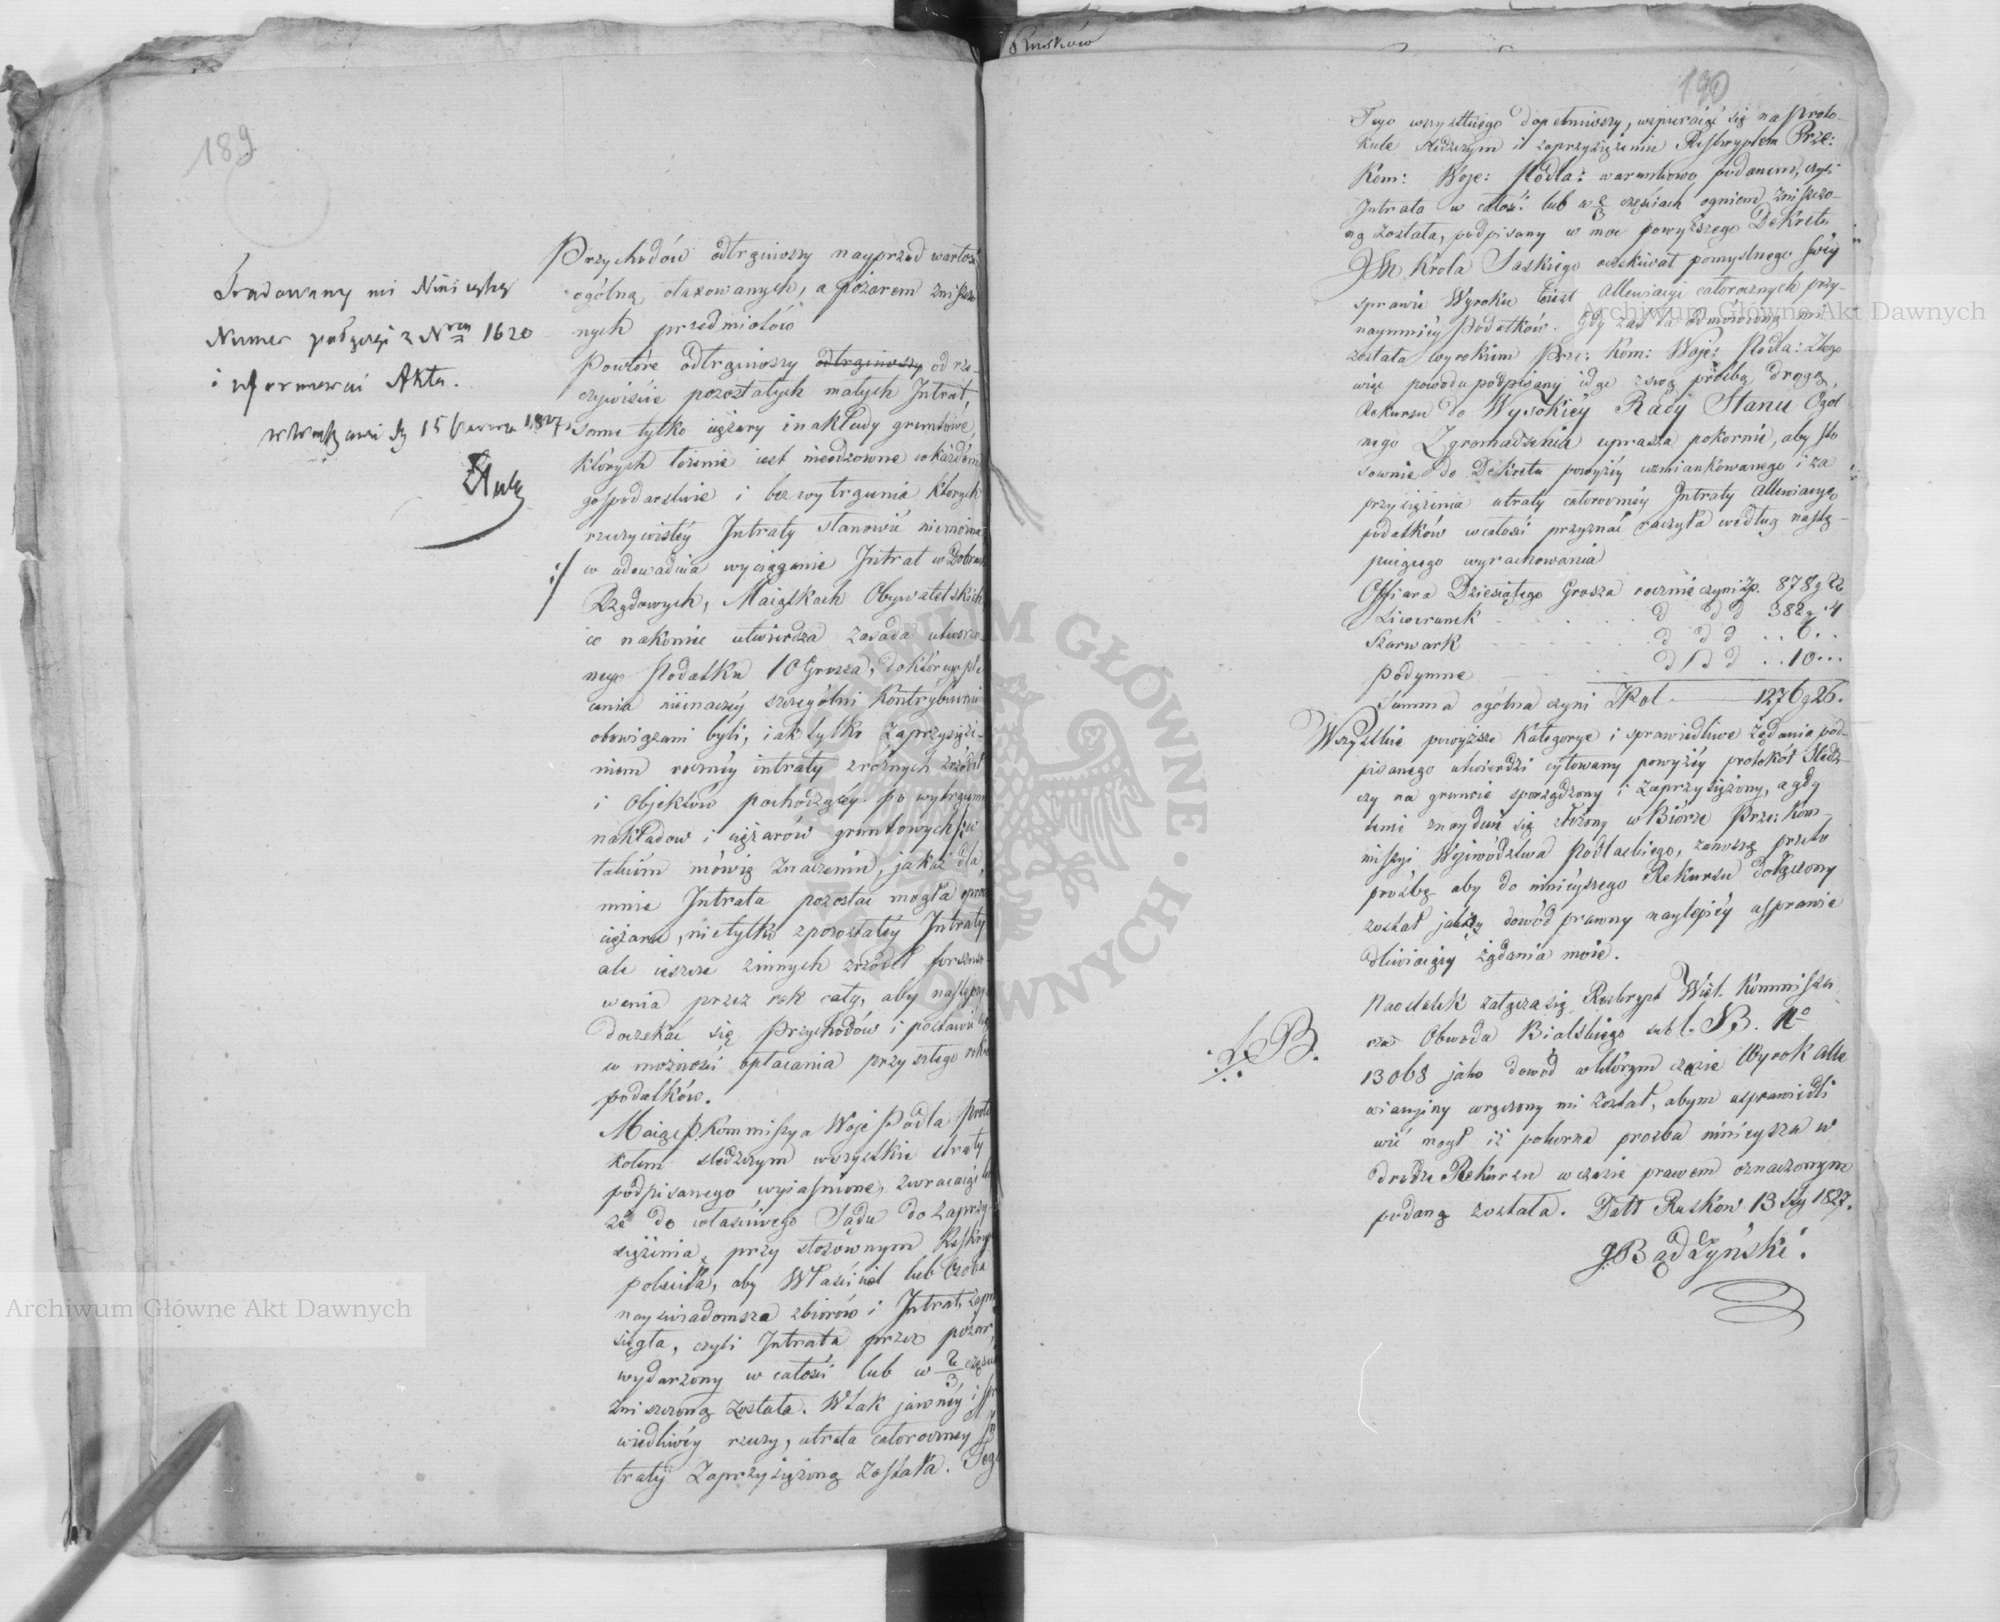 189
Numer połączyć z Nrem 1620
i uformować Akta.
w Warszawie dnia 15 Czerwca 1827
Przychodów odtrgnioszy nayprzod wartość
ogólną otaxowanych, a pożarem zniszczo
nych przedmiotów
Powtóre odtrgnioszy odtrgnioszy od rze-
czywiście pozostałych małych Intrat,
same tylko ciężary i nakłady gruntowe,
których łożenie iest nieodzowne w każdem
gospodarstwie i bez wytrgnienia których
rzeczywistéy Intraty stanowić niemożna
:/ co udowadnia wyciąganie Intrat w Dobrach
Rządowych, Maiątkach Obywatelskich
co nakoniec utwierdza zasada utworzo-
nego Podatku 10 Grosza, do którego pła
cenia nieinaczéy szczególni Kontrybuenci
obowiązani byli, iak tylko zaprzysięże-
niem roczney intraty z różnych źrzódeł
i Objektów pochodzącey po wytrgnieniu
nakładow i ciężarów gruntowych /: w
takiem mówię znaczeniu, jakaż dla
mnie Intrata pozostać mogła oprocz
ciężaru, nietylko z pozostałéy Intraty
ale ieszcze z innych źrzódeł forszuso
wania przez rok cały, aby następnych
doczekać się Przychodów i postawić się
w możności opłacania przyszłego roku
podatków.
Maiąc P. Kommissya Woje Podla Proto
kołem śledczym wszystkie straty
podpisanego wyiaśnione, zwracaiąc
że do właściwego Sądu do zaprzy-
siężenia, przy stosownym Reskryp
poleciła, aby Właściciel lub Osoba
nayświadomsza zbiorów i Intrat, zaprzy
sięgła, czyli Intrata przez pożar
wydarzony w całości lub w 2/3 części
zniszczoną została. W tak jawnéy i spra
wiedliwéy rzeczy, utrata całorocznéy In
traty zaprzysiężoną została. Tego
Ruskow
190
Tego wszystkiego dopełniwszy, wspieraiąc się na Proto-
kule śledczym i zaprzysiężeniu Reskryptem Prze:
Kom: Woje: Podla: warunkowo podanem, czyli
Intrata w całoś: lub w 2/3 częściach ogniem zniszczo-
ną została, podpisany w moc powyższego Dekretu
Króla Saskiego oczekiwał pomyślnego swéy
sprawie Wyroku Allewiacyi całorocznych przy-
naymniéy Podatków. Gdy zaś ta odmówioną mi
została wyrokiem Prze: Kom: Woje: Podla: z tego
więc powodu podpisany idąc z swą prośbą drogą,
Rekursu do Wysokiéy Rady Stanu Ogól
nego Zgromadzenia uprasza pokornie, aby sto
sownie do Dekretu powyżéy wzmiankowanego i za
przysiężenia utraty całorocznéy Intraty Allewiacyę
podatków w całości przyznać raczyła według nastę-
puiącego wyrachowania
Offiara Dziesiątego Grosza rocznie czyni Zp. 878 g 22
Liwerunek . . . . d d d 382 g. 4
Szarwark . . . . d d d . . 6 . .
Podymne . . . . d d d . . 10 . . .
Summa ogólna czyni ZPol 1276 g 26.
Wszystkie powyższe Kategorye i sprawiedliwe żądania pod-
pisanego utwierdzi cytowany powyżéy protokół śled-
czy na gruncie sporządzony i zaprzysiężony, a gdy
tenże znayduie się złożony w Biórze Prze: Kom-
missyi Wojewódstwa Podlaskiego, zanoszę przeto
prośbę aby do ninieyszego Rekursu dołączony
został jako dowód prawny naylepiéy usprawie
dliwiaiący żądania moie.
:/: B. Naostatek załącza się Reskrypt Wiel. Kommissa
rza Obwodu Bialskiego sub L. B. No
13068 jako dowód w którym czasie Wyrok Alle
wiacyiny wręczony mi został, abym usprawiedli
wić mogł iż pokorna prosba ninieysza w
drodze Rekursu w czasie prawem oznaczonym
podaną została. Datt Ruskow 13 Sty 1827.
J. Bądzyński.
Archiwum Główne Akt Dawnych
Archiwum Główne Akt Dawnych
ARCHIWUM GŁÓWNE AKT DAWNYCH